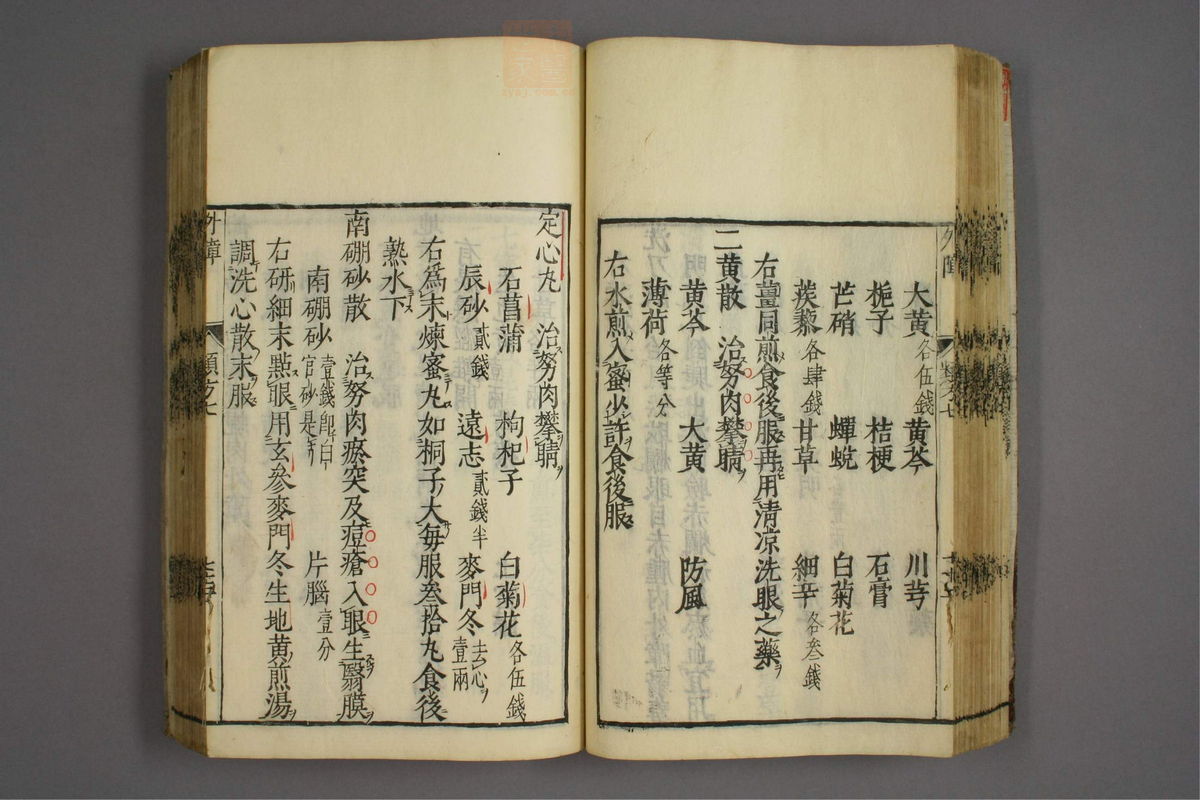 大黄各伍錢 黄芩 川芎
梔子 桔梗 石膏
芒硝 蟬蛻 白菊花
蒺藜各肆錢 甘草 細辛各叁錢
右薑同煎食後服再用清凉洗眼之藥ヲ
二黄散 治努肉攀睛ヲ
黄芩 大黄 防風
薄荷各等分
右水煎入蜜少許食後服
定心丸 治努肉攀睛ヲ
石菖蒲 枸杞子 白菊花各伍錢
辰砂貳錢 遠志貳錢半 麥門冬去心壹兩
右爲末煉蜜丸如桐子大毎服叁拾丸食後
熟水下
南硼砂散 治努肉瘀突及痘瘡入眼生翳膜ヲ
南硼砂壹錢卽白官砂是 片腦壹分
右研細末點眼用玄參麥門冬生地黄煎湯
調洗心散末服
外障 類方七